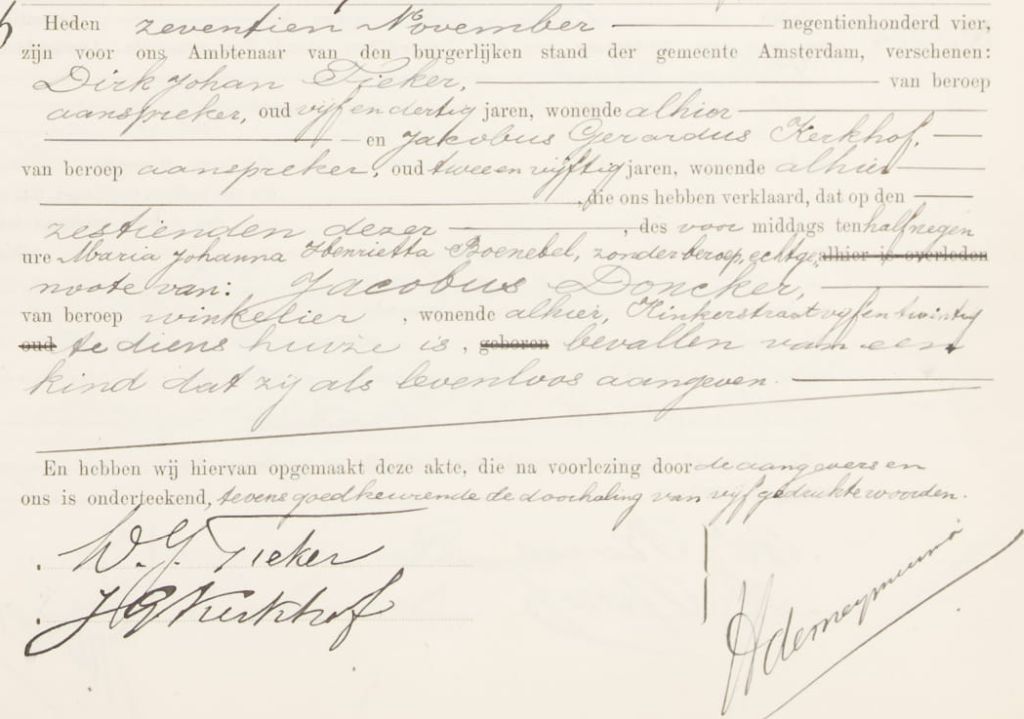 Heden zeventien November negentienhonderd vier,
zijn voor ons Ambtenaar van den burgerlijken stand der gemeente Amsterdam, verschenen:
Dirk Johan Tieker, van beroep
aanspreker, oud vijf en dertig jaren, wonende alhier
en Jacobus Gerardus Kerkhof,
van beroep aanspreker, oud twee en vijftig jaren, wonende alhier
, die ons hebben verklaard, dat op den
zestienden dezer, des voor middags ten half negen
ure Maria Johanna Henrietta Boenebel, zonder beroep, echtge alhier is overleden
noote van: Jacobus Doncker,
van beroep winkelier, wonende alhier, Kinkerstraat vijf en twintig
oud te diens huize is, geboren bevallen van een
kind dat zij als levenloos aangeven.
En hebben wij hiervan opgemaakt deze akte, die na voorlezing door de aangevers en
ons is onderteekend, tevens goedkeurende de doorhaling van vijf gedrukte woorden.
Tieker
J G Kerkhof